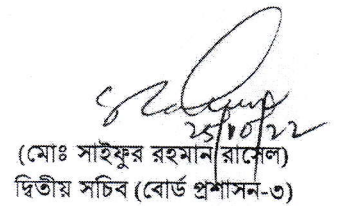 ২৫/১০/২২
(মোঃ সাইফুর রহমান রাসেল)
দ্বিতীয় সচিব (বোর্ড প্রশাসন-৩)